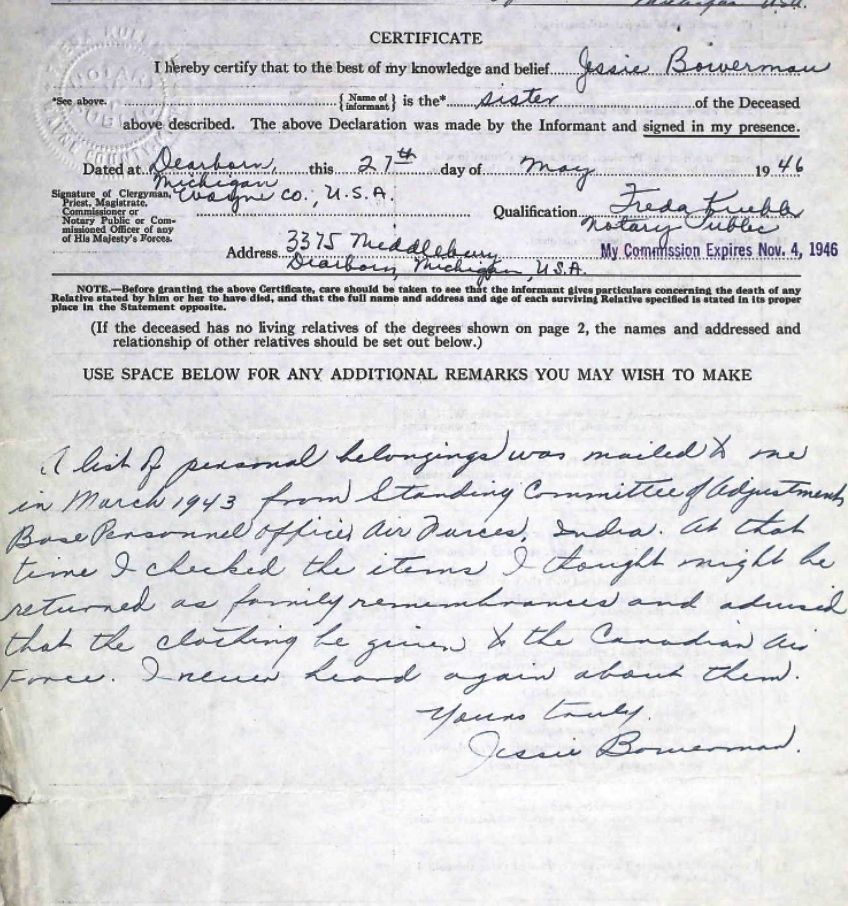 Michigan USA.
CERTIFICATE
I hereby certify that to the best of my knowledge and belief Jessie Bowerman
*See above. { Name of informant } is the* sister of the Deceased
above described. The above Declaration was made by the Informant and signed in my presence.
Dated at Dearborn, this 27th day of May 1946
Michigan
Wayne Co., U.S.A.
Signature of Clergyman,
Priest, Magistrate,
Commissioner or
Notary Public or Com-
missioned Officer of any
of His Majesty's Forces.
Qualification Freda
Notary Public
Address 3375 Middlebury
Dearborn, Michigan, U.S.A.
My Commission Expires Nov. 4, 1946
NOTE.—Before granting the above Certificate, care should be taken to see that the informant gives particulars concerning the death of any
Relative stated by him or her to have died, and that the full name and address and age of each surviving Relative specified is stated in its proper
place in the Statement opposite.
(If the deceased has no living relatives of the degrees shown on page 2, the names and addressed and
relationship of other relatives should be set out below.)
USE SPACE BELOW FOR ANY ADDITIONAL REMARKS YOU MAY WISH TO MAKE
A list of personal belongings was mailed to me
in March 1943 from Standing Committee of Adjustment
Base Personnel office, Air Forces, India. At that
time I checked the items I thought might be
returned as family remembrances and advised
that the clothing be given to the Canadian Air
Force. I never heard again about them.
Yours truly.
Jessie Bowerman.